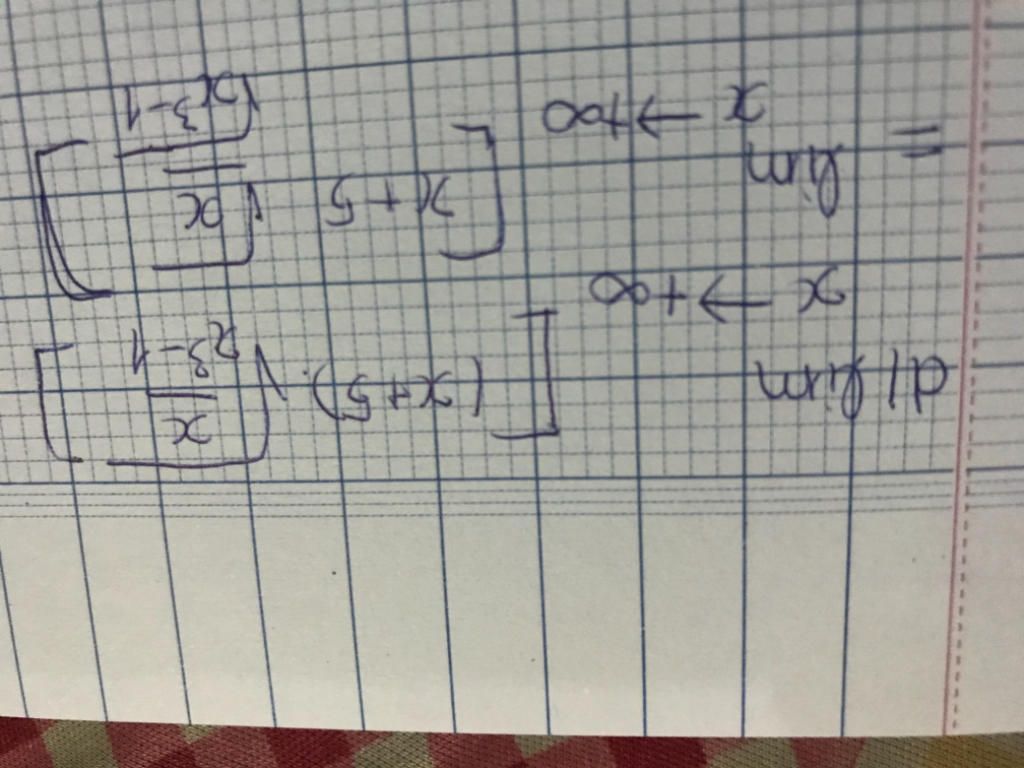 d) lim [(x+5).√(x/(x³-1))]
x → +∞
= lim [x+5 √x/√(x³-1)]
x → +∞